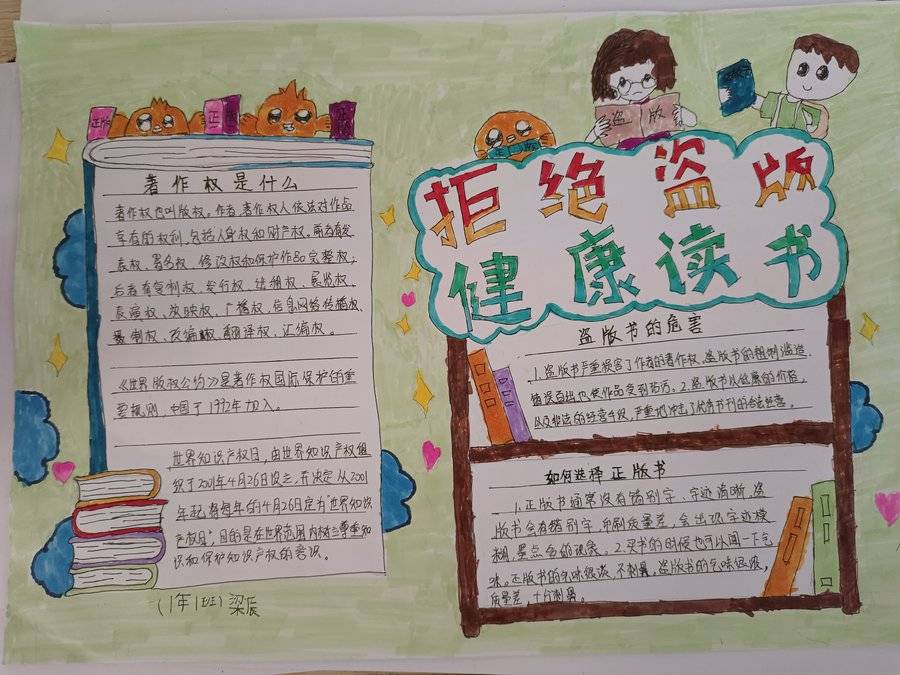 正版
正版
盗版
拒绝盗版
健康读书
著作权是什么
著作权也叫版权。作者著作权人依法对作品
享有的权利,包括人身权和财产权。前者有发
表权、署名权、修改权和保护作品完整权;
后者有复制权、发行权、出租权、展览权、
表演权、放映权、广播权、信息网络传播权、
摄制权、改编权、翻译权、汇编权。
《世界版权公约》是著作权国际保护的重
要规则,中国于1992年加入。
世界知识产权日,由世界知识产权组
织于2001年4月26日设立,并决定从2001
年起,将每年的4月26日定为“世界知识
产权日”,目的是在世界范围内树立尊重知
识和保护知识产权的意识。
(1年1班)梁辰
盗版书的危害
1.盗版书严重损害了作者的著作权,盗版书的粗制滥造,
错误百出也使作品受到玷污。2.盗版书以低廉的价格,
以及非法的经营手段,严重地冲击了优秀书刊的合法经营。
如何选择正版书
1.正版书通常没有错别字、字迹清晰,盗
版书会有错别字,印刷质量差,会出现字迹模
糊,墨点多的现象。2.买书的时候也可以闻一下气
味。正版书的气味很淡,不刺鼻,盗版书的气味很浓,
质量差,十分刺鼻。